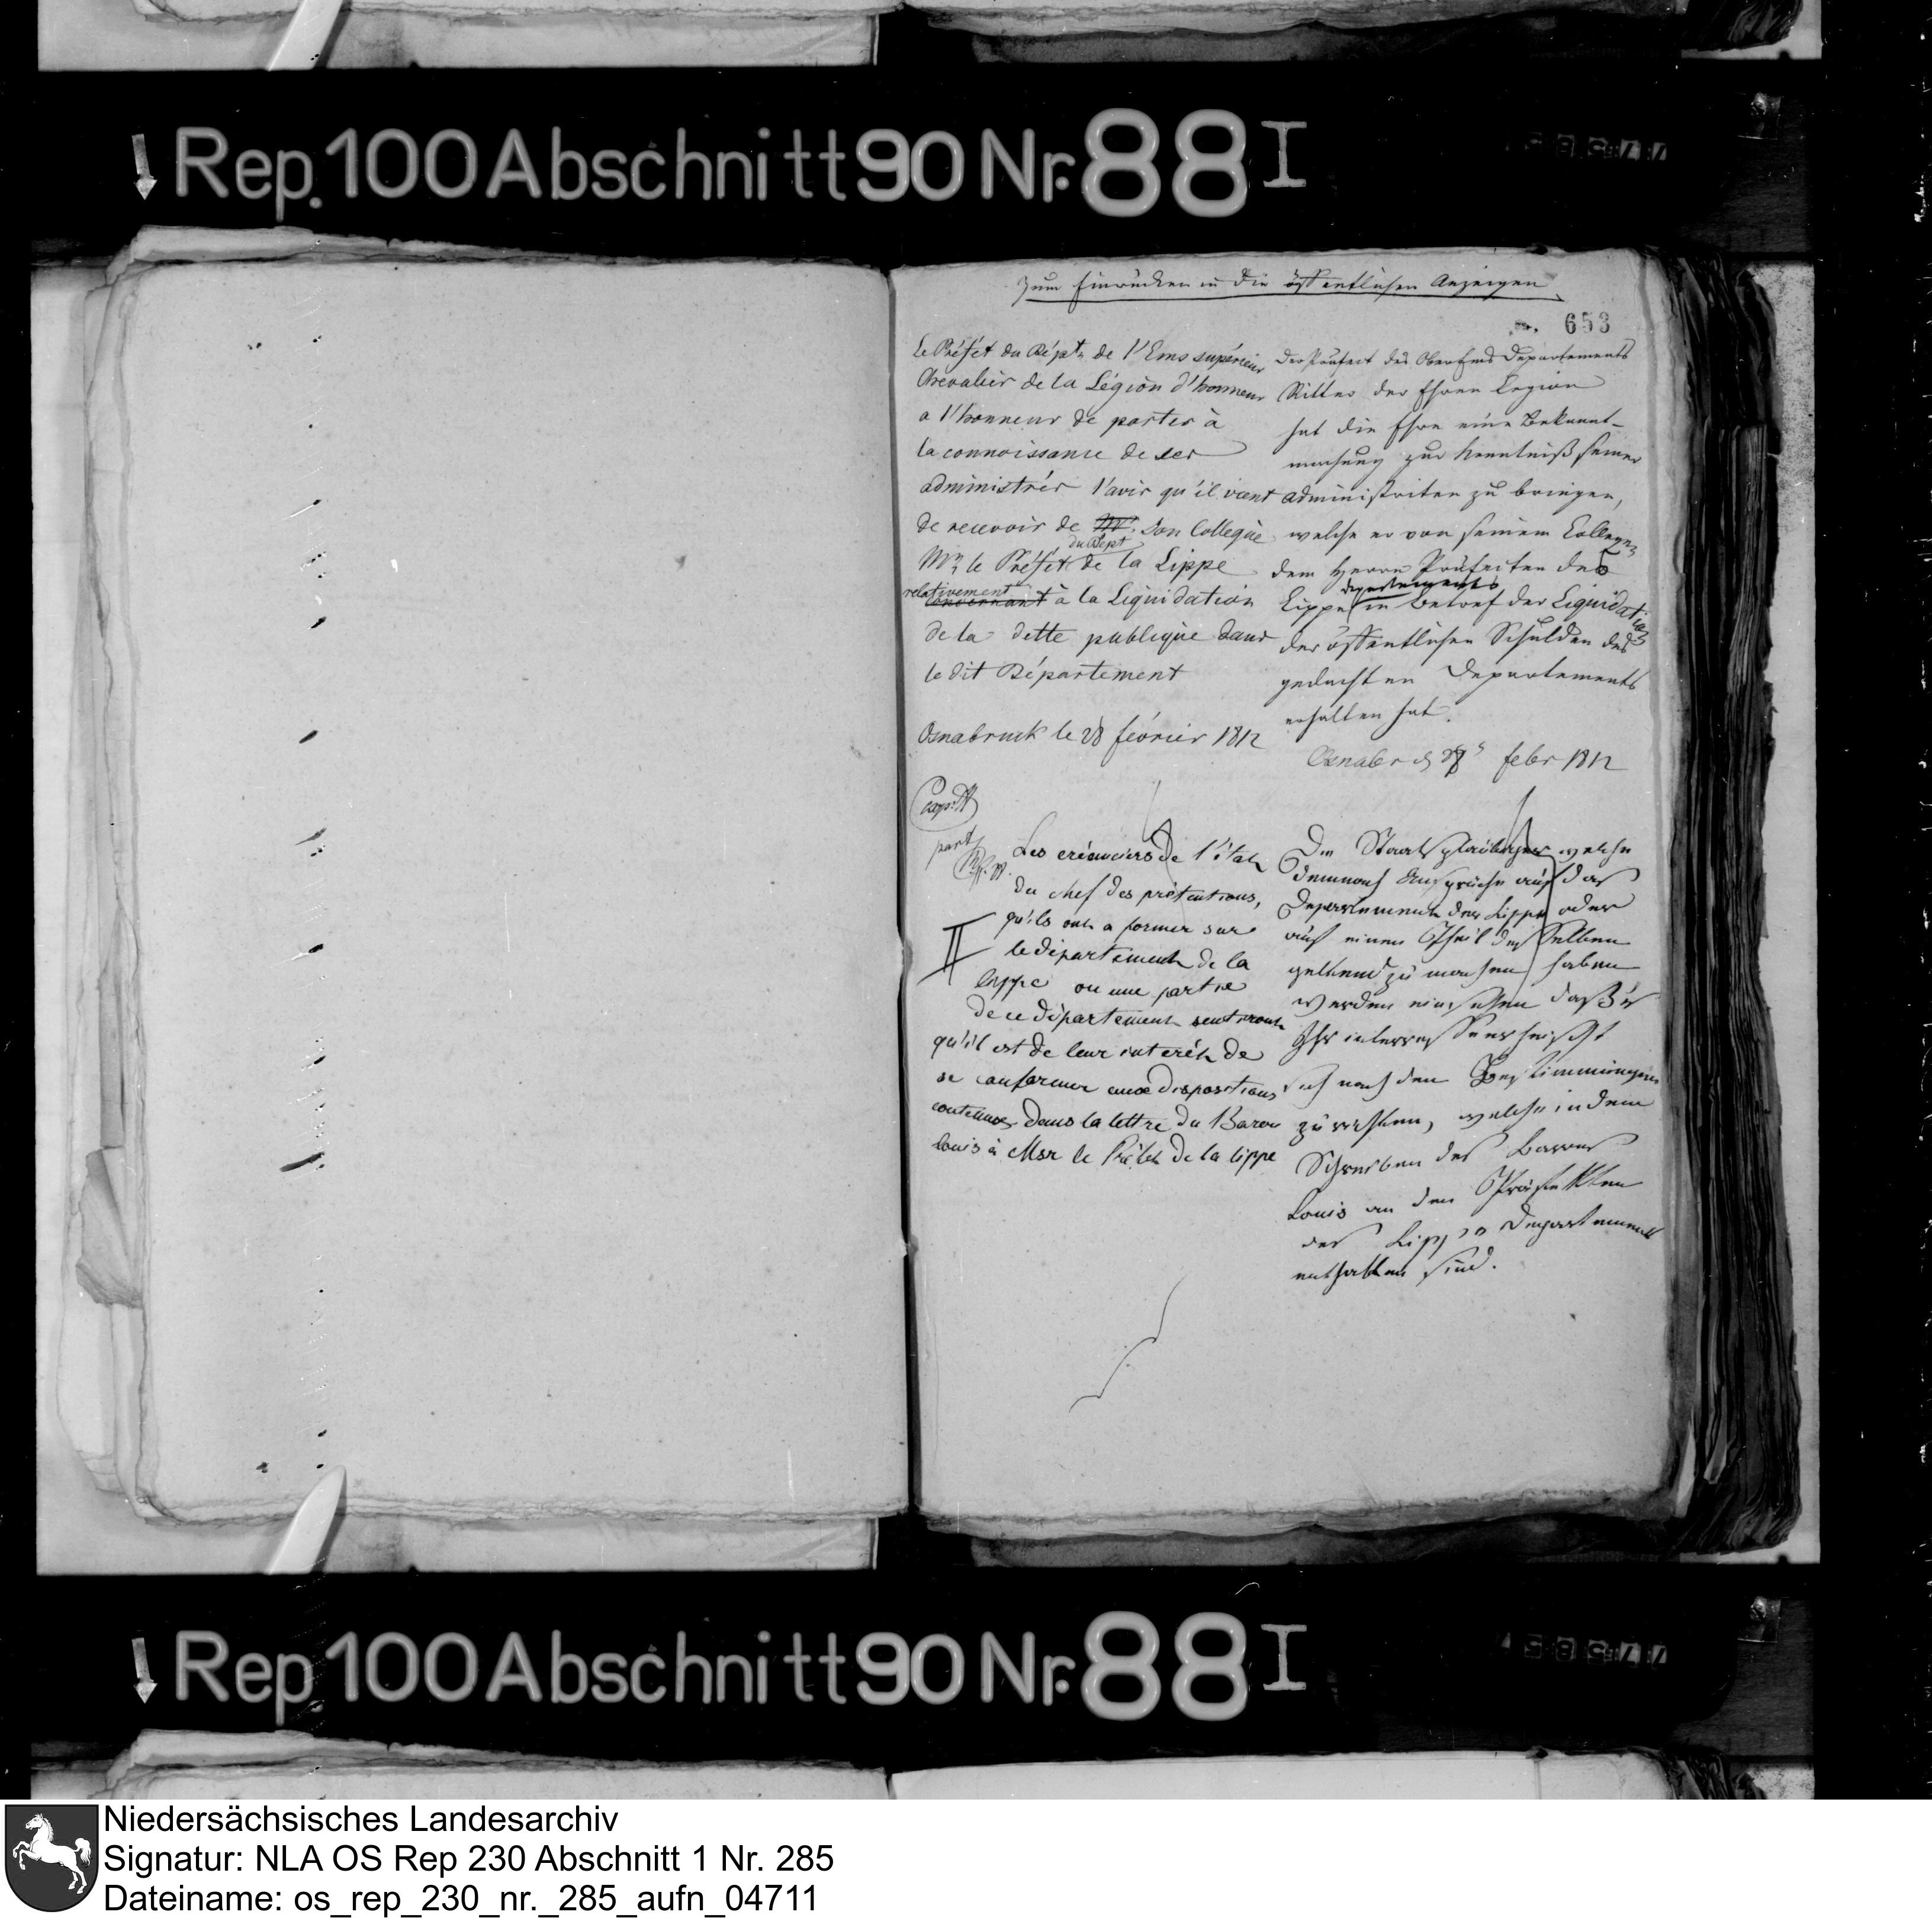 Rep. 100 Abschnitt 90 Nr. 88 I
Zum Einrücken in die öffentlichen Anzeigen
653
Le Préfét du Dépat. de l'Ems supérieur
Chevalier de la Légion d'honneur
a l'honneur de porter à
la connoissance de ses
administrés l'avis qu'il vient
de recevoir de Mr. son Collegue
du Dept
Mr. le Préfet de la Lippe
relativement
concernant à la Liquidation
de la dette publique dans
le dit Département
Osnabruck le 28 février 1812
Les créanciers de l'état
du chef des prétentions,
qu'ils ont a former sur
II le département de la
Lippe ou une partie
de ce département sentiront
qu'il est de leur interêt de
se conformer aux dispositions
contenues dans la lettre du Baron
Louis à Msr le Préfet de la Lippe
Der Präfect des OberEms Departements
Ritter der Ehren Legion
hat die Ehre eine Bekannt-
machung zur Kenntniß seiner
administrirten zu bringen,
welche er von seinem Collegen
dem Herrn Präfecten des
Departements
Lippe in Betref der Liquidation
der öffentlichen Schulden des
gedachten Departements
erhalten hat.
Osnabr d 28 febr 1812
Die Staatsgläubiger welche
demnach Ansprüche auf das
Departement der Lippe oder
auf einen Theil desselben
geltend zu machen haben
werden einsehen daß es
Ihr interesse erheischt
sich nach den Bestimmungen
zu richten, welche in dem
Schreiben des Baron
Louis an den Präfekten
des Lippe Departements
enthalten sind.
Rep 100 Abschnitt 90 Nr. 88 I
Niedersächsisches Landesarchiv
Signatur: NLA OS Rep 230 Abschnitt 1 Nr. 285
Dateiname: os_rep_230_nr._285_aufn_04711